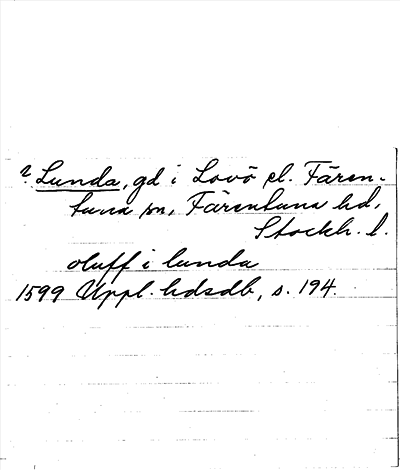 ? Lunda, gd i Lovö el. Fären-
tuna sn, Färentuna hd,
Stockh. l.
oluff i lunda
1599 Uppl. hdsdb, s. 194.